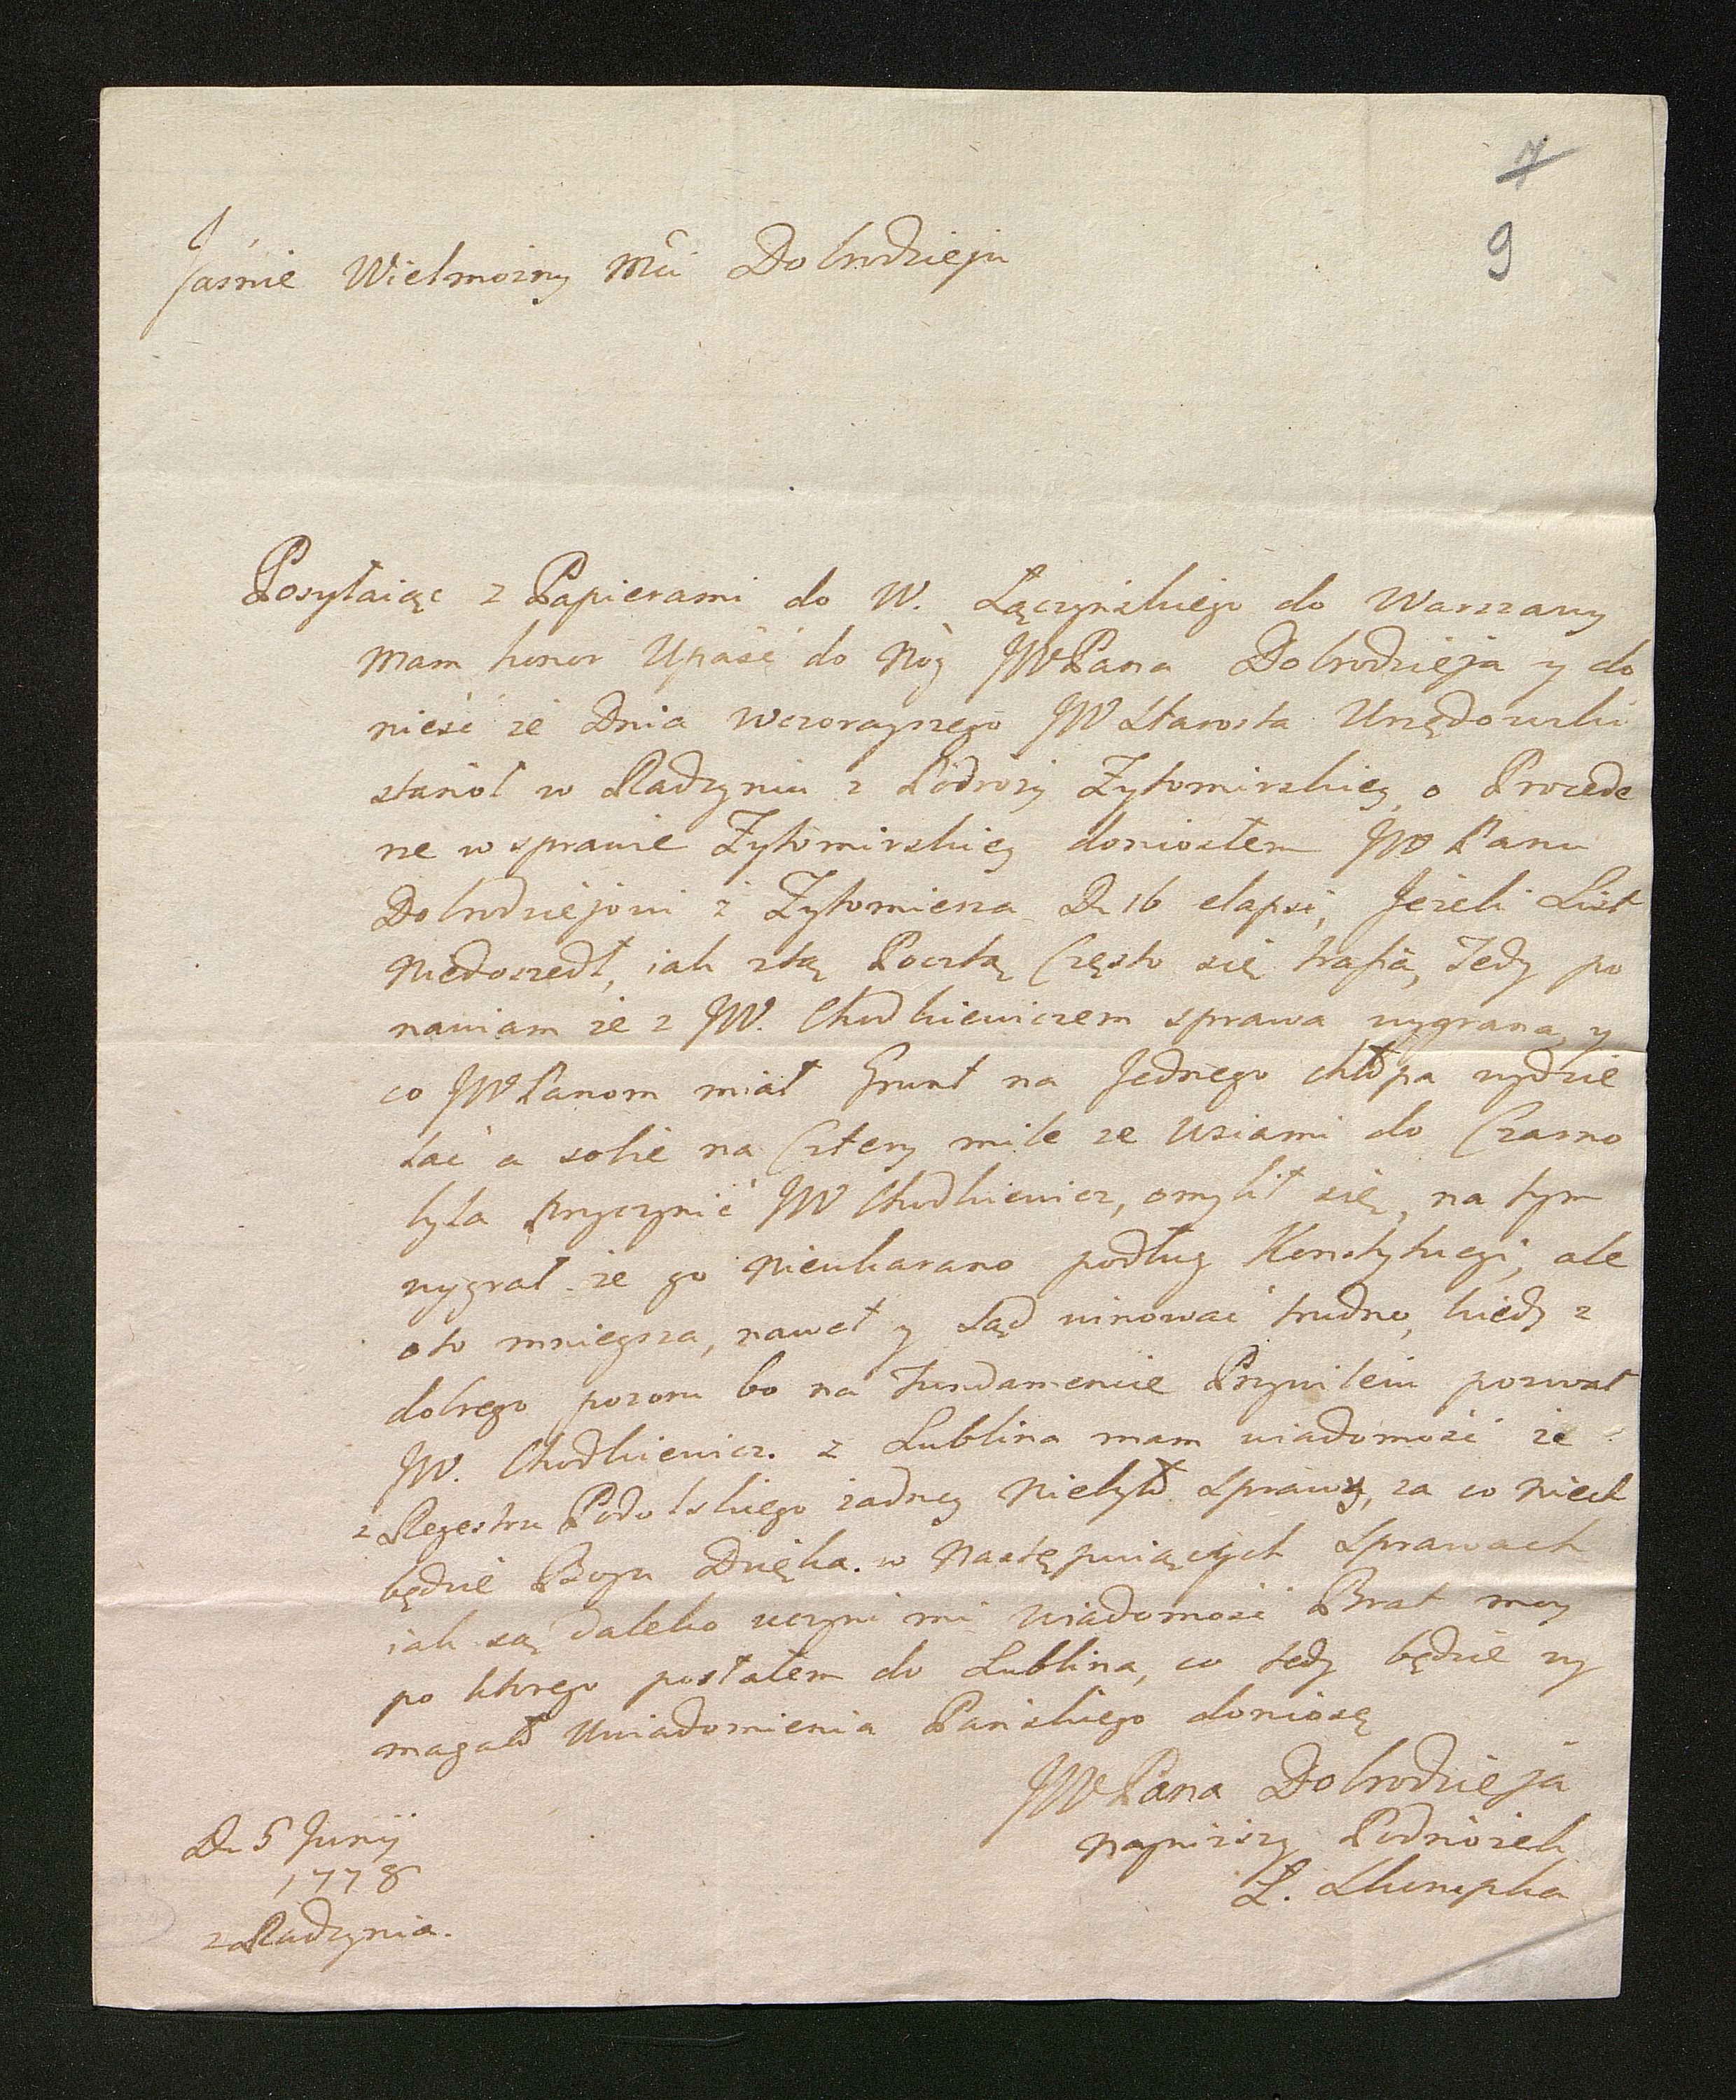 7
9
Jaśnie Wielmożny Mci Dobrodzieju
Posyłaiąc z Papierami do W. Łączyńskiego do Warszawy
mam honor Upaść do Nóg JWPana Dobrodzieja y do
nieść że Dnia wczorayszego JW Starosta Urzędowski
stanoł w Radzyniu z Podroży Żytomirskiey, o Procede
rze w sprawie Żytomirskiey doniosłem JW Panu
Dobrodziejowi z Żytomierza D. 16 elapsi, Jeżeli List
niedoszedł, iak ztą Pocztą Często się trafia, Tedy po
nawiam że z JW. Chodkiewiczem sprawa wygrana, y
co JWPanom miał Grunt na Jednego chłopa wydzie
lać a sobie na Cztery mile ze Wsiami do Czarno
byla przyczynić JW Chodkiewicz, omylił się, na tym
wygrał że go nieukarano podług Konstytucyi, ale
oto mnieysza, nawet y Sąd winować trudno, kiedy z
dobrego pozoru bo na Fundamencie Przywileiu pozwał
JW. Chodkiewicz. z Lublina mam wiadomość że
z Regestru Podolskiego żadney niebyło Sprawy, za co niech
będzie Bogu Dzięka. w Następuiących Sprawach
iak są daleko uczyni mi wiadomość Brat moy
po ktorego posłałem do Lublina, co tedy będzie wy
magało Uwiadomienia Pańskiego doniosę
JWPana Dobrodzieja
Nayniższy Podnóżek
D. 5 Junij
1778
z Radzynia.